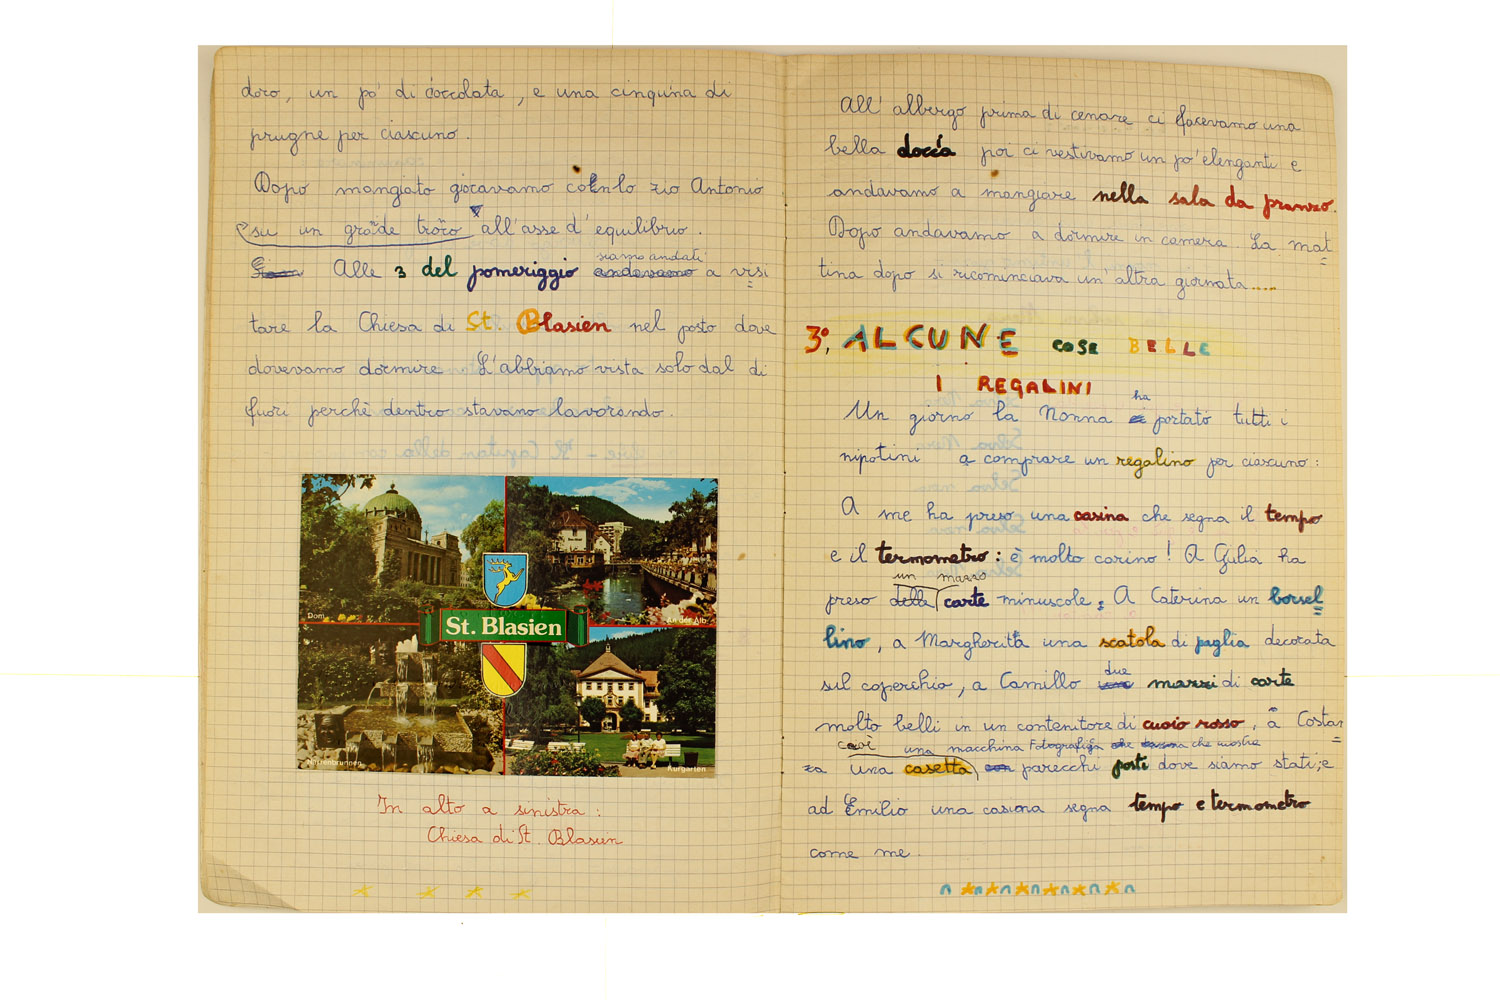 doro, un pò di cioccolata, e una cinquina di
prugne per ciascuno.
Dopo mangiato giocavamo con lo zio Antonio
su un grande tronco all'asse d'equilibrio.
Alle 3 del pomeriggio andavamo a visi
siamo andati
tare la Chiesa di St. Blasien nel posto dove
dovevamo dormire. L'abbiamo vista solo dal di
fuori perchè dentro stavano lavorando.
Dom
An der Alb
St. Blasien
Narrenbrunnen
Kurgarten
In alto a sinistra:
Chiesa di St. Blasien
All'albergo prima di cenare ci facevamo una
bella doccia poi ci vestivamo un po' elenganti e
andavamo a mangiare nella sala da pranzo.
Dopo andavamo a dormire in camera. La mat
tina dopo si ricominciava un'altra giornata.....
3°, ALCUNE COSE BELLE
I REGALINI
ha
Un giorno la Nonna portato tutti i
nipotini a comprare un regalino per ciascuno:
A me ha preso una casina che segna il tempo
e il termometro: è molto carino! A Gulia ha
un mazzo
preso delle carte minuscole; A Caterina un borsel
lino, a Margherita una scatola di paglia decorata
due
sul coperchio, a Camillo mazzi di carte
molto belli in un contenitore di cuoio rosso, a Costan
cioè una macchina Fotografica che che mostra
za una casetta con parecchi posti dove siamo stati; e
ad Emilio una casina segna tempo e termometro
come me.